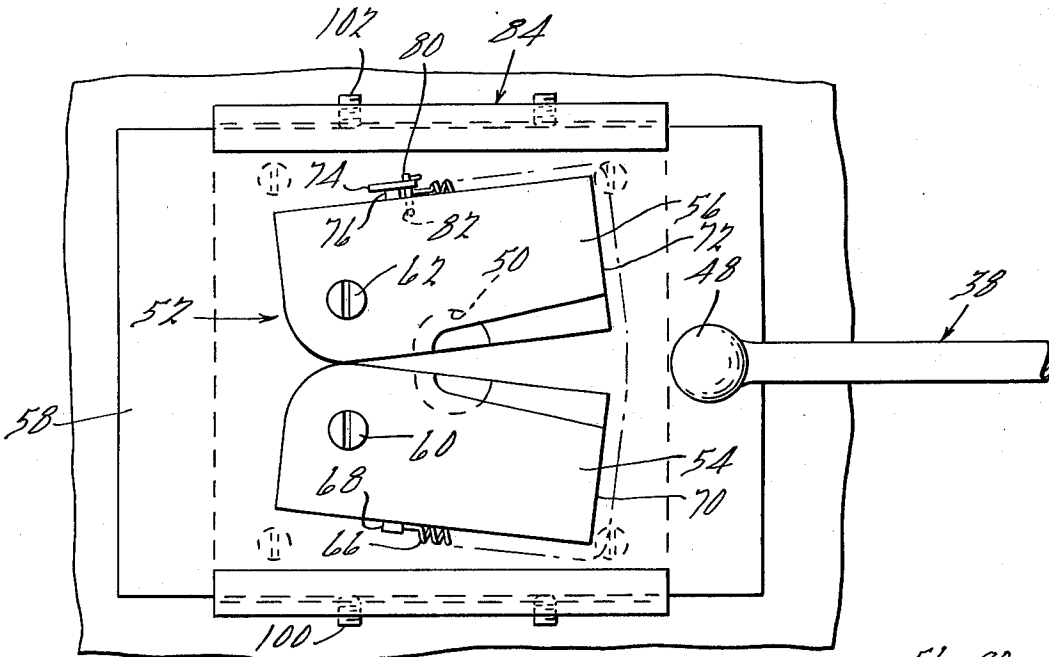 102
80
84
74
76
82
56
72
50
62
48
38
52
58
60
54
68
70
66
100
56 80